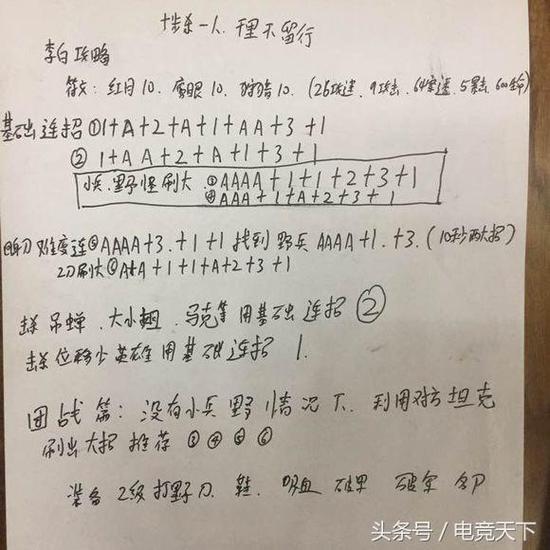 十步杀一人. 千里不留行
李白攻略
符文: 红月10. 鹰眼10. 狩猎10. (26攻速. 9攻击. 64穿透. 5暴击 600生命)
基础连招 ①1+A+2+A+1+AA+3+1
② 1+AA+2+A+1+3+1
小兵.野怪刷大 ③AAAA+1+1+2+3+1
④AAA+1+A+2+3+1
难度连⑤AAAA+3.+1+1 找到野兵 AAAA+1.+3.(10秒两大招)
2刀刷大⑥AAA+1+1+A+2+3+1
貂蝉. 大小 马克等用基础连招 ②
位移少英雄用基础连招 1.
团战篇: 没有小兵野情况下. 利用对方坦克
刷出大招 推荐 ③④⑤⑥
装备 2级打野刀. 鞋. 吸血 破甲 破军 名刀
头条号 / 电竞天下